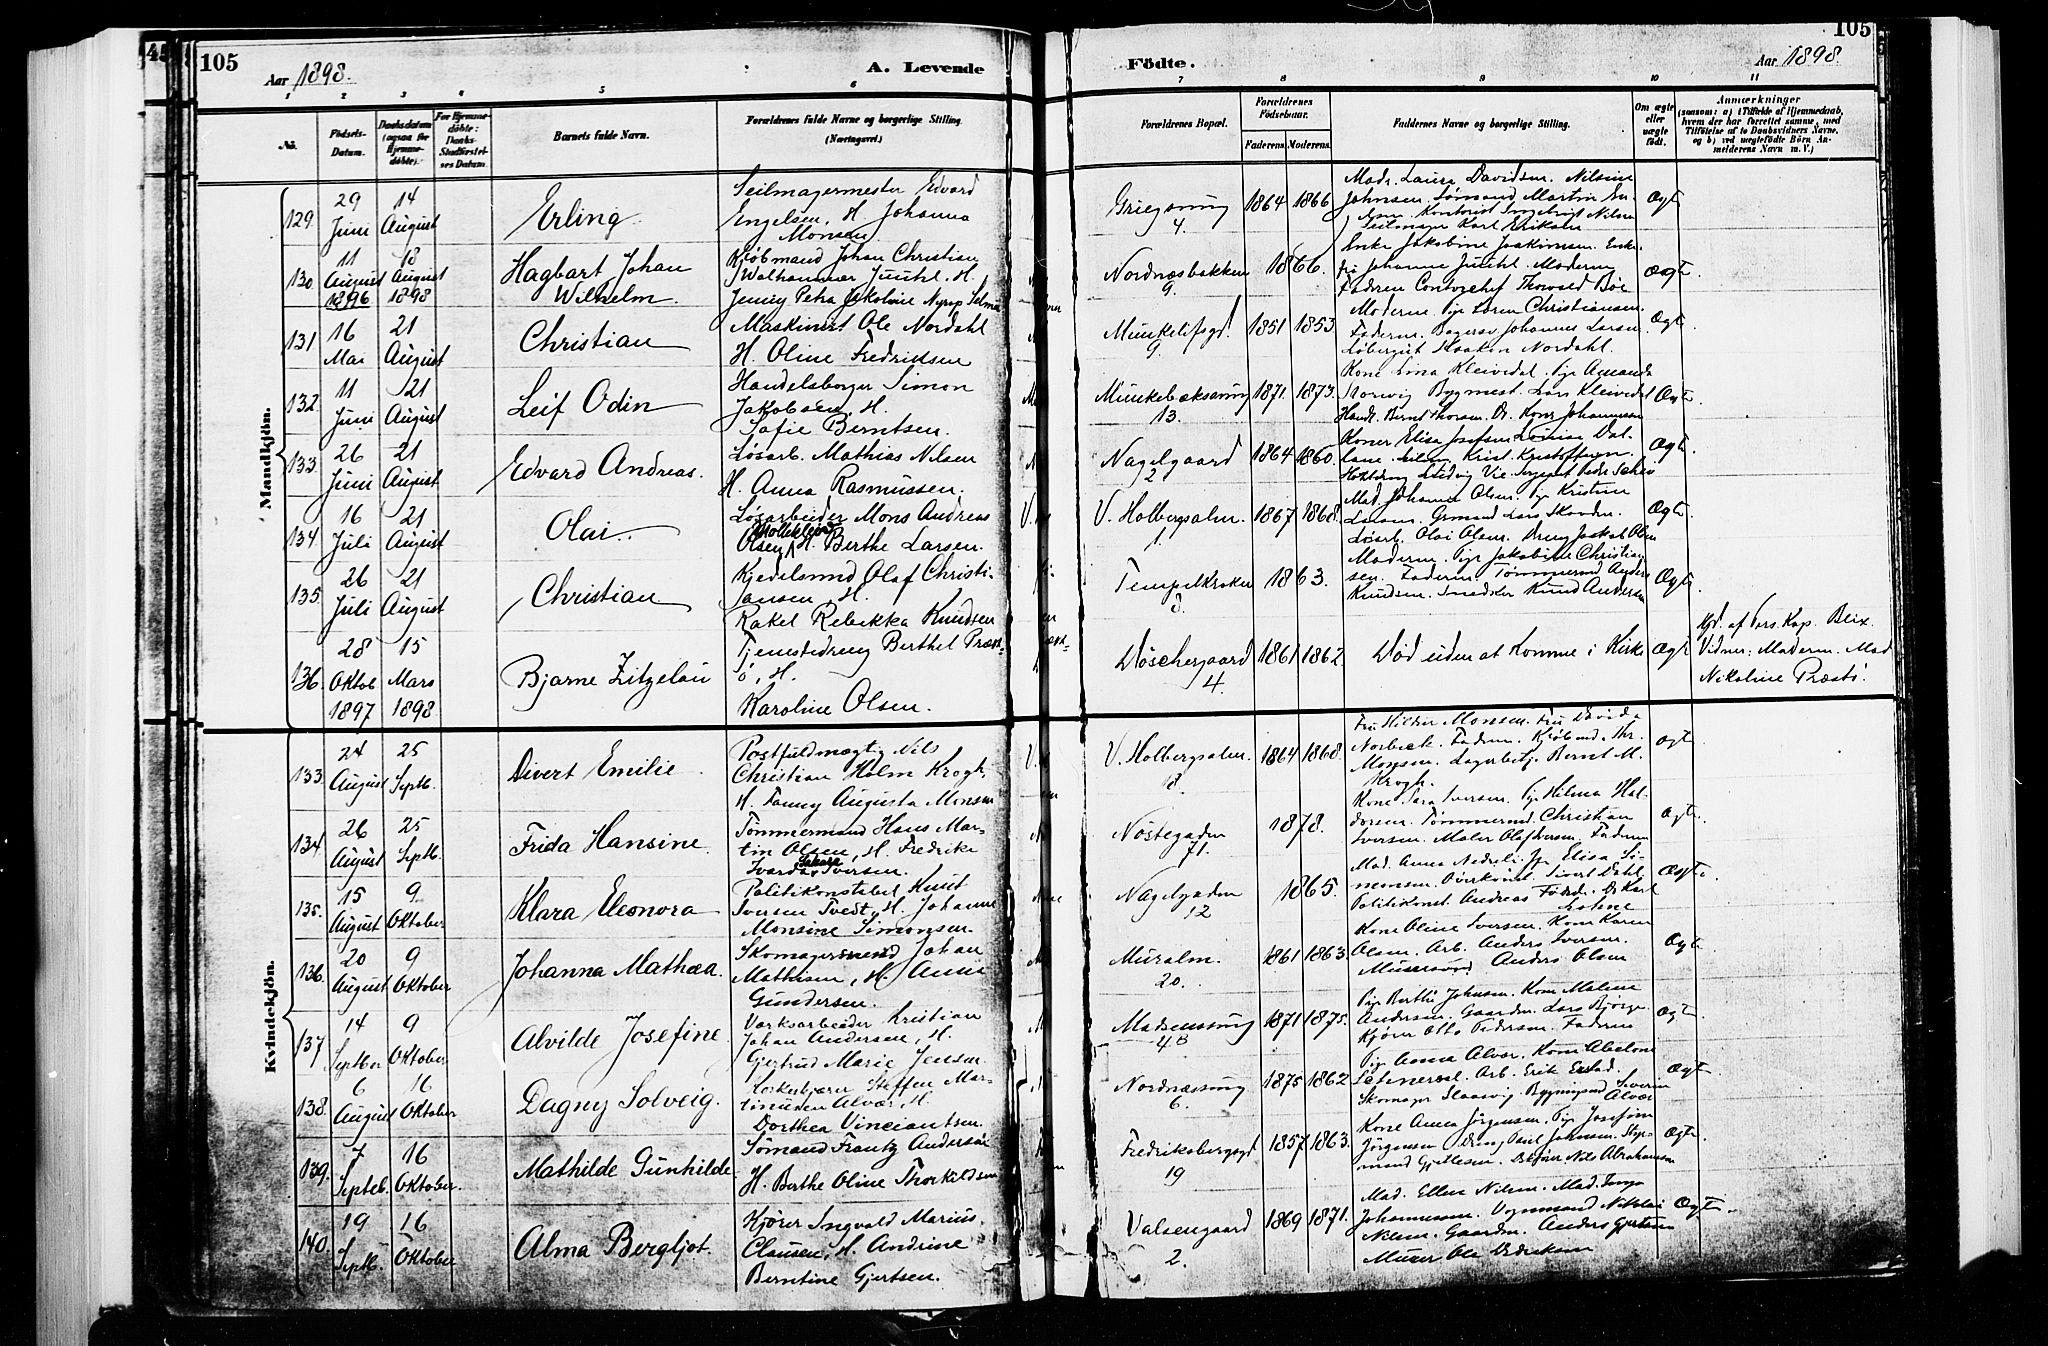 105
Aar 1898.
A. Levende
Födte.
Aar 1898.
105
1 2 3 4 5 6 7 8 9 10 11
No.
Födsels-Datum.
Daabsdatum (ogsaa for Hjemmedöbte).
For Hjemmedöbte: Daabs-Stadfæstelses Datum.
Barnets fulde Navn.
Forældrenes fulde Navne og borgerlige Stilling. (Næringsvei.)
Forældrenes Bopæl.
Forældrenes Födselsaar.
Faderens. Moderens.
Faddernes Navne og borgerlige Stilling.
Om ægte eller uægte födt.
Anmærkninger
(saasom: a) i Tilfælde af Hjemmedaab, hvem der har forrettet samme, med Tilföielse af to Daabsvidners Navne, og b) ved uegtefödte Börn Anmelderens Navn m. V.)
Mandkjön.
129 29 Juni 14 August Erling. Seilmagermester Edvard
Engelsen, H. Johanna
Monsen Griegsmug 4. 1864 1866 Madr. Laura Davidsen. Nilsine
Johnsen. Sømand Martin
Kontorist Ingebrigt Nilsen
Seilmager Karl Eriksen Ægt
130 11 August 1896 18 August 1898 Hagbart Johan Wilhelm. Kjøbmand Johan Christian
Walhammer Juuhl. H.
Jenny Petra Jakobine Nyrup Selmer Nordnæsbakken 9. 1866. Enke Jakobine Joakimsen. Enke-
fru Johanne Juuhl. Moderen
Faderen Contorchef Thorvald Bøe Ægte
131 16 Mai 21 August Christian Maskinist Ole Nordahl
H. Oline Fredriksen Munkelifsgd. 9. 1851 1853. Moderen. Pige Loren Christiansen.
Faderen. Bagersv. Johannes Larsen
Løbergut Haakon Nordahl. Ægt
132 11 Juni 21 August Leif Odin Handelsborger Simon
Jakobsen, H.
Sofie Berntsen. Munkebæksmug 13. 1871. 1873. Kone Lina Kleivedal. Pige Amanda
Norvig Bygmest. Lars Kleivedal
Handl. Bernt Thorsen. Johannessen Ægt.
133. 26 Juni 21 August Edvard Andreas. Løsarb. Mathias Nilsen
H. Anna Rasmussen. Nagelgaard 2 1864 1860. Koner Elisa Josefsen Lovise
Krist. Kristoffersen.
Ludvig Vie Sergeant Ægt.
134 16 Juli 21 August Olai Løsarbeider Mons Andreas
Olsen H. Berthe Larsen. V. Holbergsalm. 1. 1867 1868. Mad. Johanna Olsen. Pige Kristine
Larsen. Lars
Løsarb. Olai Olsen. Dreng Jakob Olsen Ægt.
135. 26 Juli 21 August Christian Kjedelsmd Olaf Christi-
ansen, H.
Rakel Rebekka Knudsen Tempelkroken 3. 1863. Moderen. Pige Jakobine Christian-
sen. Faderen Tømmermd Anders
Knudsen. Knud Andersen Ægt.
136. 28 Oktob 1897 15 Mars 1898 Bjarne Zitzelau Tjenestedreng Berthel Præst-
ø, H.
Karoline Olsen. Døschergaard 4. 1861 1862. Død uden at komme i Kirke Ægt Hjd. af Pers. Kap. Blix.
Vidner: Moderen. Mad
Nikoline Præstø.
Kvindekjön.
133 24 August 25 Septb. Divert Emilie. Postfuldmægtig Nils
Christian Holm Krogh,
H. Fanny Augusta Monsen V. Holbergsalm. 18. 1864 1868. Fru Hilda Monsen. Fru Davida
Norbeck. Faderen. Kjøbmd. Thr.
Monsen. Lagerbetj. Bernt M.
Krogh. Ægt.
134. 26 August 25 Septb. Frida Hansine. Tømmermand Hans Mar-
tin Olsen, H. Fredrike
Iversen. Nøstegaden 71. 1878. Kone Sara Iversen. Pige Hilma Hal-
dorsen. Tømmermd. Christian
Iversen. Maler Olaf Iversen. Faderen Ægt.
135. 15 August 9 Oktober Klara Eleonora Politikonstabel Knut
Iversen Tvedt, H. Johanne
Monsine Simonsen. Nagelgaden 12 1865. Mad. Anna Nedreli. Pige Elisa Si-
monsen. Sivert Dahl
Politikonst. Andreas Ægt.
136. 20 August 9 Oktober Johanna Mathea. Skomagersvend Johan
Mathisen, H. Anna
Gundersen. Muralm. 20. 1861 1863. Kone Oline Iversen. Kone Karen
Olsen. Arb. Anders Iversen.
Murersvend Anders Olsen Ægt.
137 14 Septber 9 Oktober Alvilde Josefine Værksarbeider Kristian
Johan Andersen, H.
Gjertrud Marie Jensen. Madsensmug 4B 1871 1875. Pige Berthe Johnsen. Kone Malene
Andersen. Gaardm. Lars Bjørge
Kjører Otto Pedersen. Faderen Ægt.
138. 6 August 16 Oktober Dagny Solveig. Steffen Mar-
tinusen Alvær, H.
Dorthea Vinciantsen. Nordnæssmug 6. 1875 1862 Pige Anna Alvær. Kone Abelone
Sætenesdal. Arb. Erik
Skomager Bygningsmd Severin Alvær Ægt.
139. 7 Septeb. 16 Oktober. Mathilde Gunhilde. Sømand Frantz Andersen
H. Berthe Oline Thorkildsen Fredriksbergsgd 19 1857 1863. Kone Anna Jørgensen. Pige Josefine
Jørgensen Dreng Paul Johnsen.
Gjertsen. Nils Abrahamsen Ægt.
140. 19 Septb. 16 Oktober Alma Bergljot. Kjører Ingvald Marius
Clausen, H. Andrine
Berntine Gjertsen. Valsengaard 2. 1869 1871. Mad. Ellen Nilsen. Mad. Inga
Johannessen. Vognmand Nikolai
Nilsen. Gaardm. Anders Gjertsen
Murer Ole Didriksen Ægt.